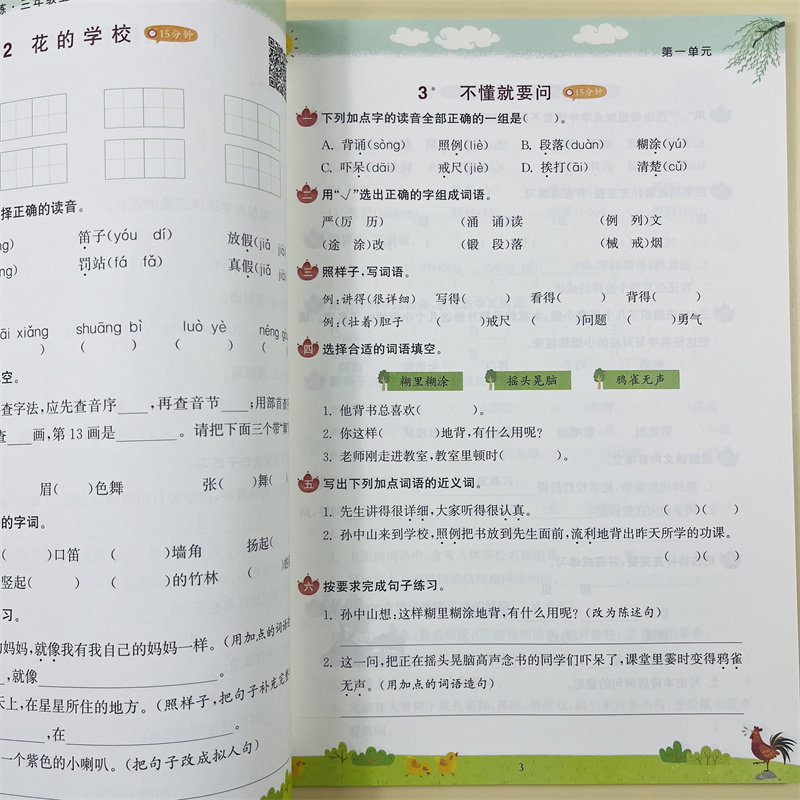 练·三年级上
2 花的学校 15分钟
择正确的读音。
笛子(yóu dí) 放假(jiǎ jià)
罚站(fá fǎ) 真假(jiǎ
āi xiǎng shuāng bì luò yè néng
( ) ( ) (
空。
查字法,应先查音序____,再查音节____;用部首查
查____画,第13画是________。请把下面三个带
眉( )色舞 张( )舞(
的字词。
( )口笛 ( )墙角 扬起(
竖起( ) ( )的竹林 (
习。
妈妈,就像我有我自己的妈妈一样。(用加点的词语
____,就像________________
天上,在星星所住的地方。(照样子,把句子补充完整
________,在________________
一个紫色的小喇叭。(把句子改成拟人句)
第一单元
3* 不懂就要问 15分钟
一 下列加点字的读音全部正确的一组是( )。
A. 背诵(sòng) 照例(liè) B. 段落(duàn) 糊涂(yú)
C. 吓呆(dāi) 戒尺(jiè) D. 挨打(āi) 清楚(cǔ)
二 用“√”选出正确的字组成词语。
严(厉 历) (涌 诵)读 (例 列)文
(途 涂)改 (锻 段)落 (械 戒)烟
三 照样子,写词语。
例:讲得(很详细) 写得( ) 看得( ) 背得( )
例:(壮着)胆子 ( )戒尺 ( )问题 ( )勇气
四 选择合适的词语填空。
糊里糊涂 摇头晃脑 鸦雀无声
1. 他背书总喜欢( )。
2. 你这样( )地背,有什么用呢?
3. 老师刚走进教室,教室里顿时( )。
五 写出下列加点词语的近义词。
1. 先生讲得很详细,大家听得很认真。 ( )( )
2. 孙中山来到学校,照例把书放到先生面前,流利地背出昨天所学的功课。
( )( )
六 按要求完成句子练习。
1. 孙中山想:这样糊里糊涂地背,有什么用呢?(改为陈述句)
2. 这一问,把正在摇头晃脑高声念书的同学们吓呆了,课堂里霎时变得鸦雀
无声。(用加点的词语造句)
3